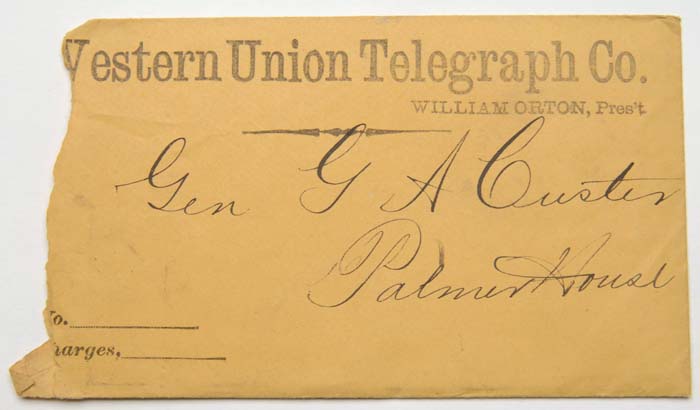 Western Union Telegraph Co.
WILLIAM ORTON, Pres't
Gen G A Custer
Palmer House
No.
harges,